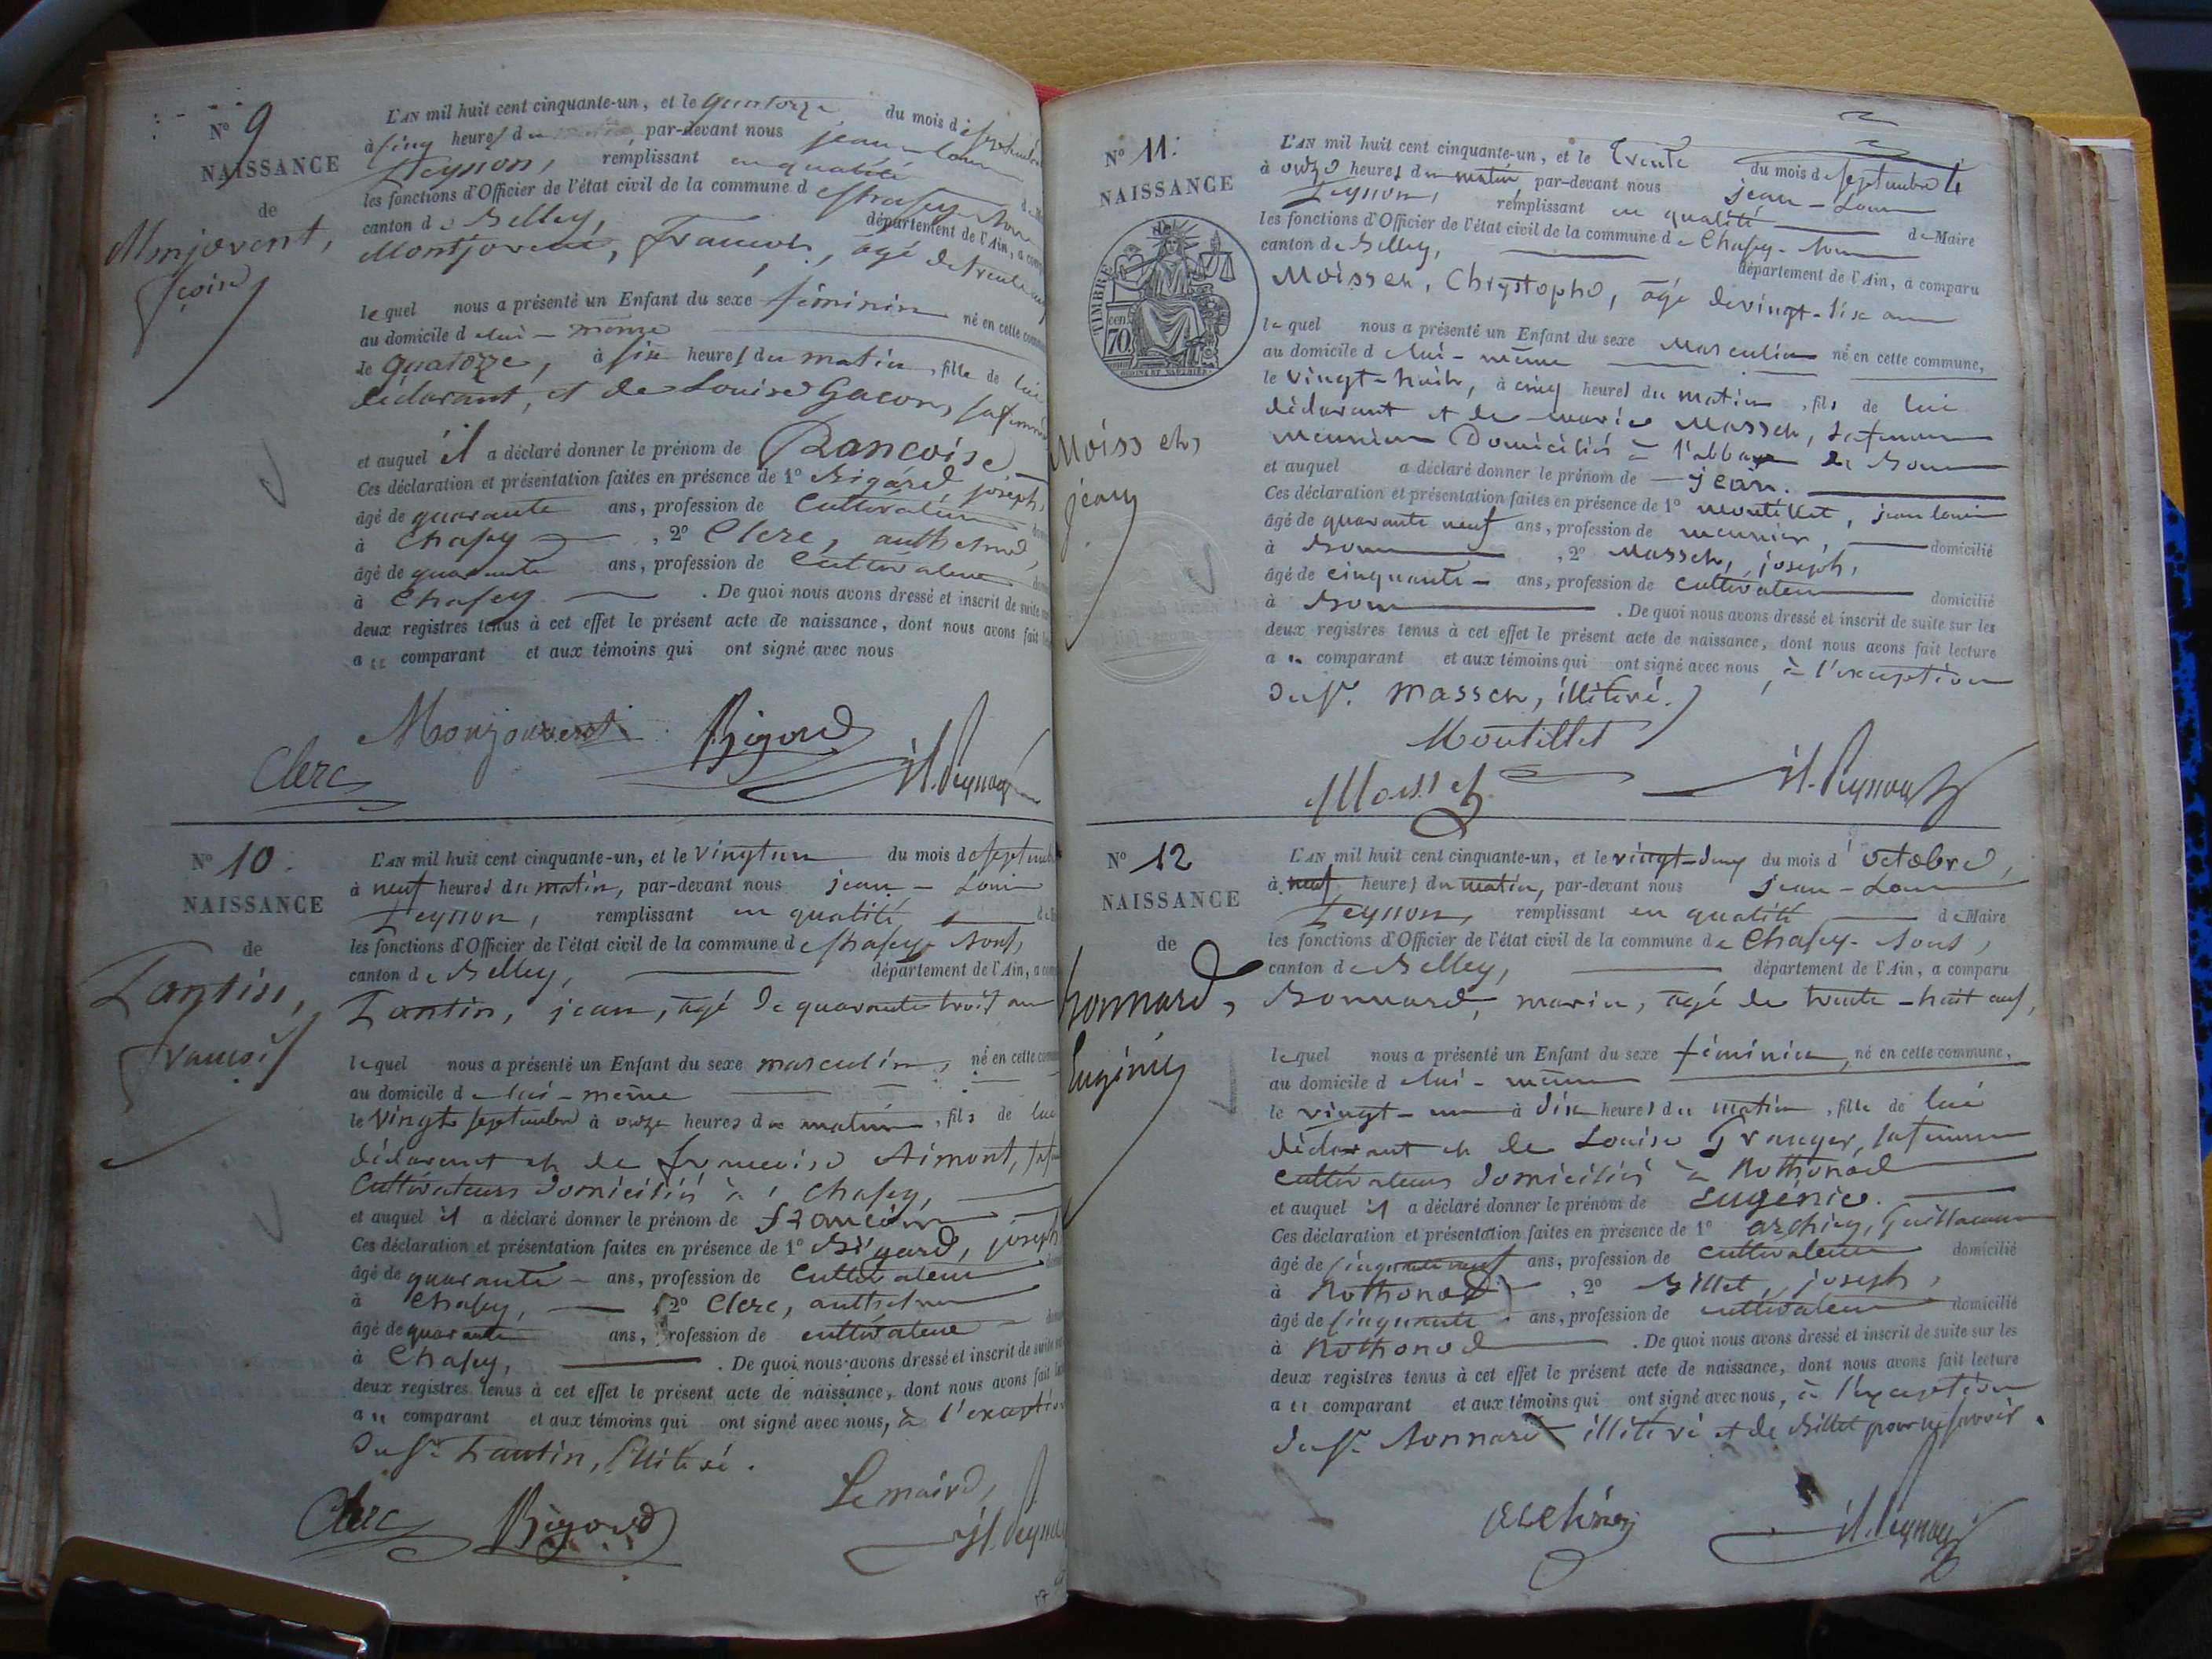 N° 9
NAISSANCE
de
Monjovent,
L'AN mil huit cent cinquante-un, et le quatorze du mois de septembre
à cinq heures du par-devant nous jean-louis
Peysson, remplissant en qualité
les fonctions d'Officier de l'état civil de la commune de Chasey-Bons
canton de Belley, département de l'Ain, a
Montjovent, François, âgé de trente
lequel nous a présenté un Enfant du sexe féminin né en cette
au domicile de lui-même
le quatorze, à six heures du matin, fille de lui
déclarant, et de Louise Gacon, sa femme
et auquel il a déclaré donner le prénom de Françoise
Ces déclaration et présentation faites en présence de 1° Bigard joseph,
âgé de quarante ans, profession de cultivateur
à Chasey, 2° Clerc, anthelme,
âgé de quarante ans, profession de cultivateur
à Chasey. De quoi nous avons dressé et inscrit de suite
deux registres tenus à cet effet le présent acte de naissance, dont nous avons fait
au comparant et aux témoins qui ont signé avec nous
Monjovent Bigard
Clerc
N° 10.
NAISSANCE
de
Tantin,
François
L'AN mil huit cent cinquante-un, et le vingt un du mois de septembre
à neuf heures du matin, par-devant nous jean-Louis
Peysson, remplissant en qualité
les fonctions d'Officier de l'état civil de la commune de Chasey-Bons,
canton de Belley, département de l'Ain, a
Tantin, jean, âgé de quarante trois ans
lequel nous a présenté un Enfant du sexe masculin, né en cette
au domicile de lui-même
le vingt septembre à onze heures du matin, fils de lui
déclarant et de françoise Aimont, sa
cultivateurs domiciliés à Chasey,
et auquel il a déclaré donner le prénom de françois
Ces déclaration et présentation faites en présence de 1° Bigard, joseph
âgé de quarante ans, profession de cultivateur
à Chasey, 2° Clerc, anthelme
âgé de quarante ans, profession de cultivateur
à Chasey, . De quoi nous avons dressé et inscrit de suite
deux registres tenus à cet effet le présent acte de naissance, dont nous avons fait
au comparant et aux témoins qui ont signé avec nous, à l'exception
du Sr. Tantin, illitéré.
Le maire,
Clerc Bigard
N° 11.
NAISSANCE
TIMBRE
cen. 70
Moissch,
jean
L'AN mil huit cent cinquante-un, et le trente du mois de septembre
à onze heures du matin, par-devant nous jean-Louis
Peysson, remplissant en qualité de Maire
les fonctions d'Officier de l'état civil de la commune de Chasey-Bons
canton de Belley, département de l'Ain, a comparu
Moissch, Chrystophe, âgé de vingt-six ans
lequel nous a présenté un Enfant du sexe Masculin né en cette commune,
au domicile de lui-même
le vingt-huit, à cinq heures du matin, fils de lui
déclarant et de marie Massch, sa femme
meuniers Domiciliés à l'abbaye de Bons
et auquel a déclaré donner le prénom de jean.
Ces déclaration et présentation faites en présence de 1° Montillet, jean louis
âgé de quarante neuf ans, profession de meunier, domicilié
à Bons, 2° Massch, joseph,
âgé de cinquante ans, profession de cultivateur domicilié
à Bons. De quoi nous avons dressé et inscrit de suite sur les
deux registres tenus à cet effet le présent acte de naissance, dont nous avons fait lecture
au comparant et aux témoins qui ont signé avec nous, à l'exception
du Sr. Massch, illitéré.
Montillet
N° 12
NAISSANCE
de
Bonnard,
Eugénie
L'AN mil huit cent cinquante-un, et le vingt-deux du mois d'octobre,
à neuf heures du matin, par-devant nous jean-Louis
Peysson, remplissant en qualité de Maire
les fonctions d'Officier de l'état civil de la commune de Chasey-Bons,
canton de Belley, département de l'Ain, a comparu
Bonnard, marin, âgé de trente-huit ans,
lequel nous a présenté un Enfant du sexe féminin, né en cette commune,
au domicile de lui-même
le vingt-un à dix heures du matin, fille de lui
déclarant et de Louise Granger, sa femme
cultivateurs domiciliés à Rothonod
et auquel il a déclaré donner le prénom de Eugénie.
Ces déclaration et présentation faites en présence de 1° archiny, Guillaume
âgé de cinquante neuf ans, profession de cultivateur domicilié
à Rothonod, 2° Billet, joseph,
âgé de cinquante ans, profession de cultivateur domicilié
à Rothonod. De quoi nous avons dressé et inscrit de suite sur les
deux registres tenus à cet effet le présent acte de naissance, dont nous avons fait lecture
au comparant et aux témoins qui ont signé avec nous, à l'exception
du Sr. Bonnard illitéré et de Billet pour ne savoir.